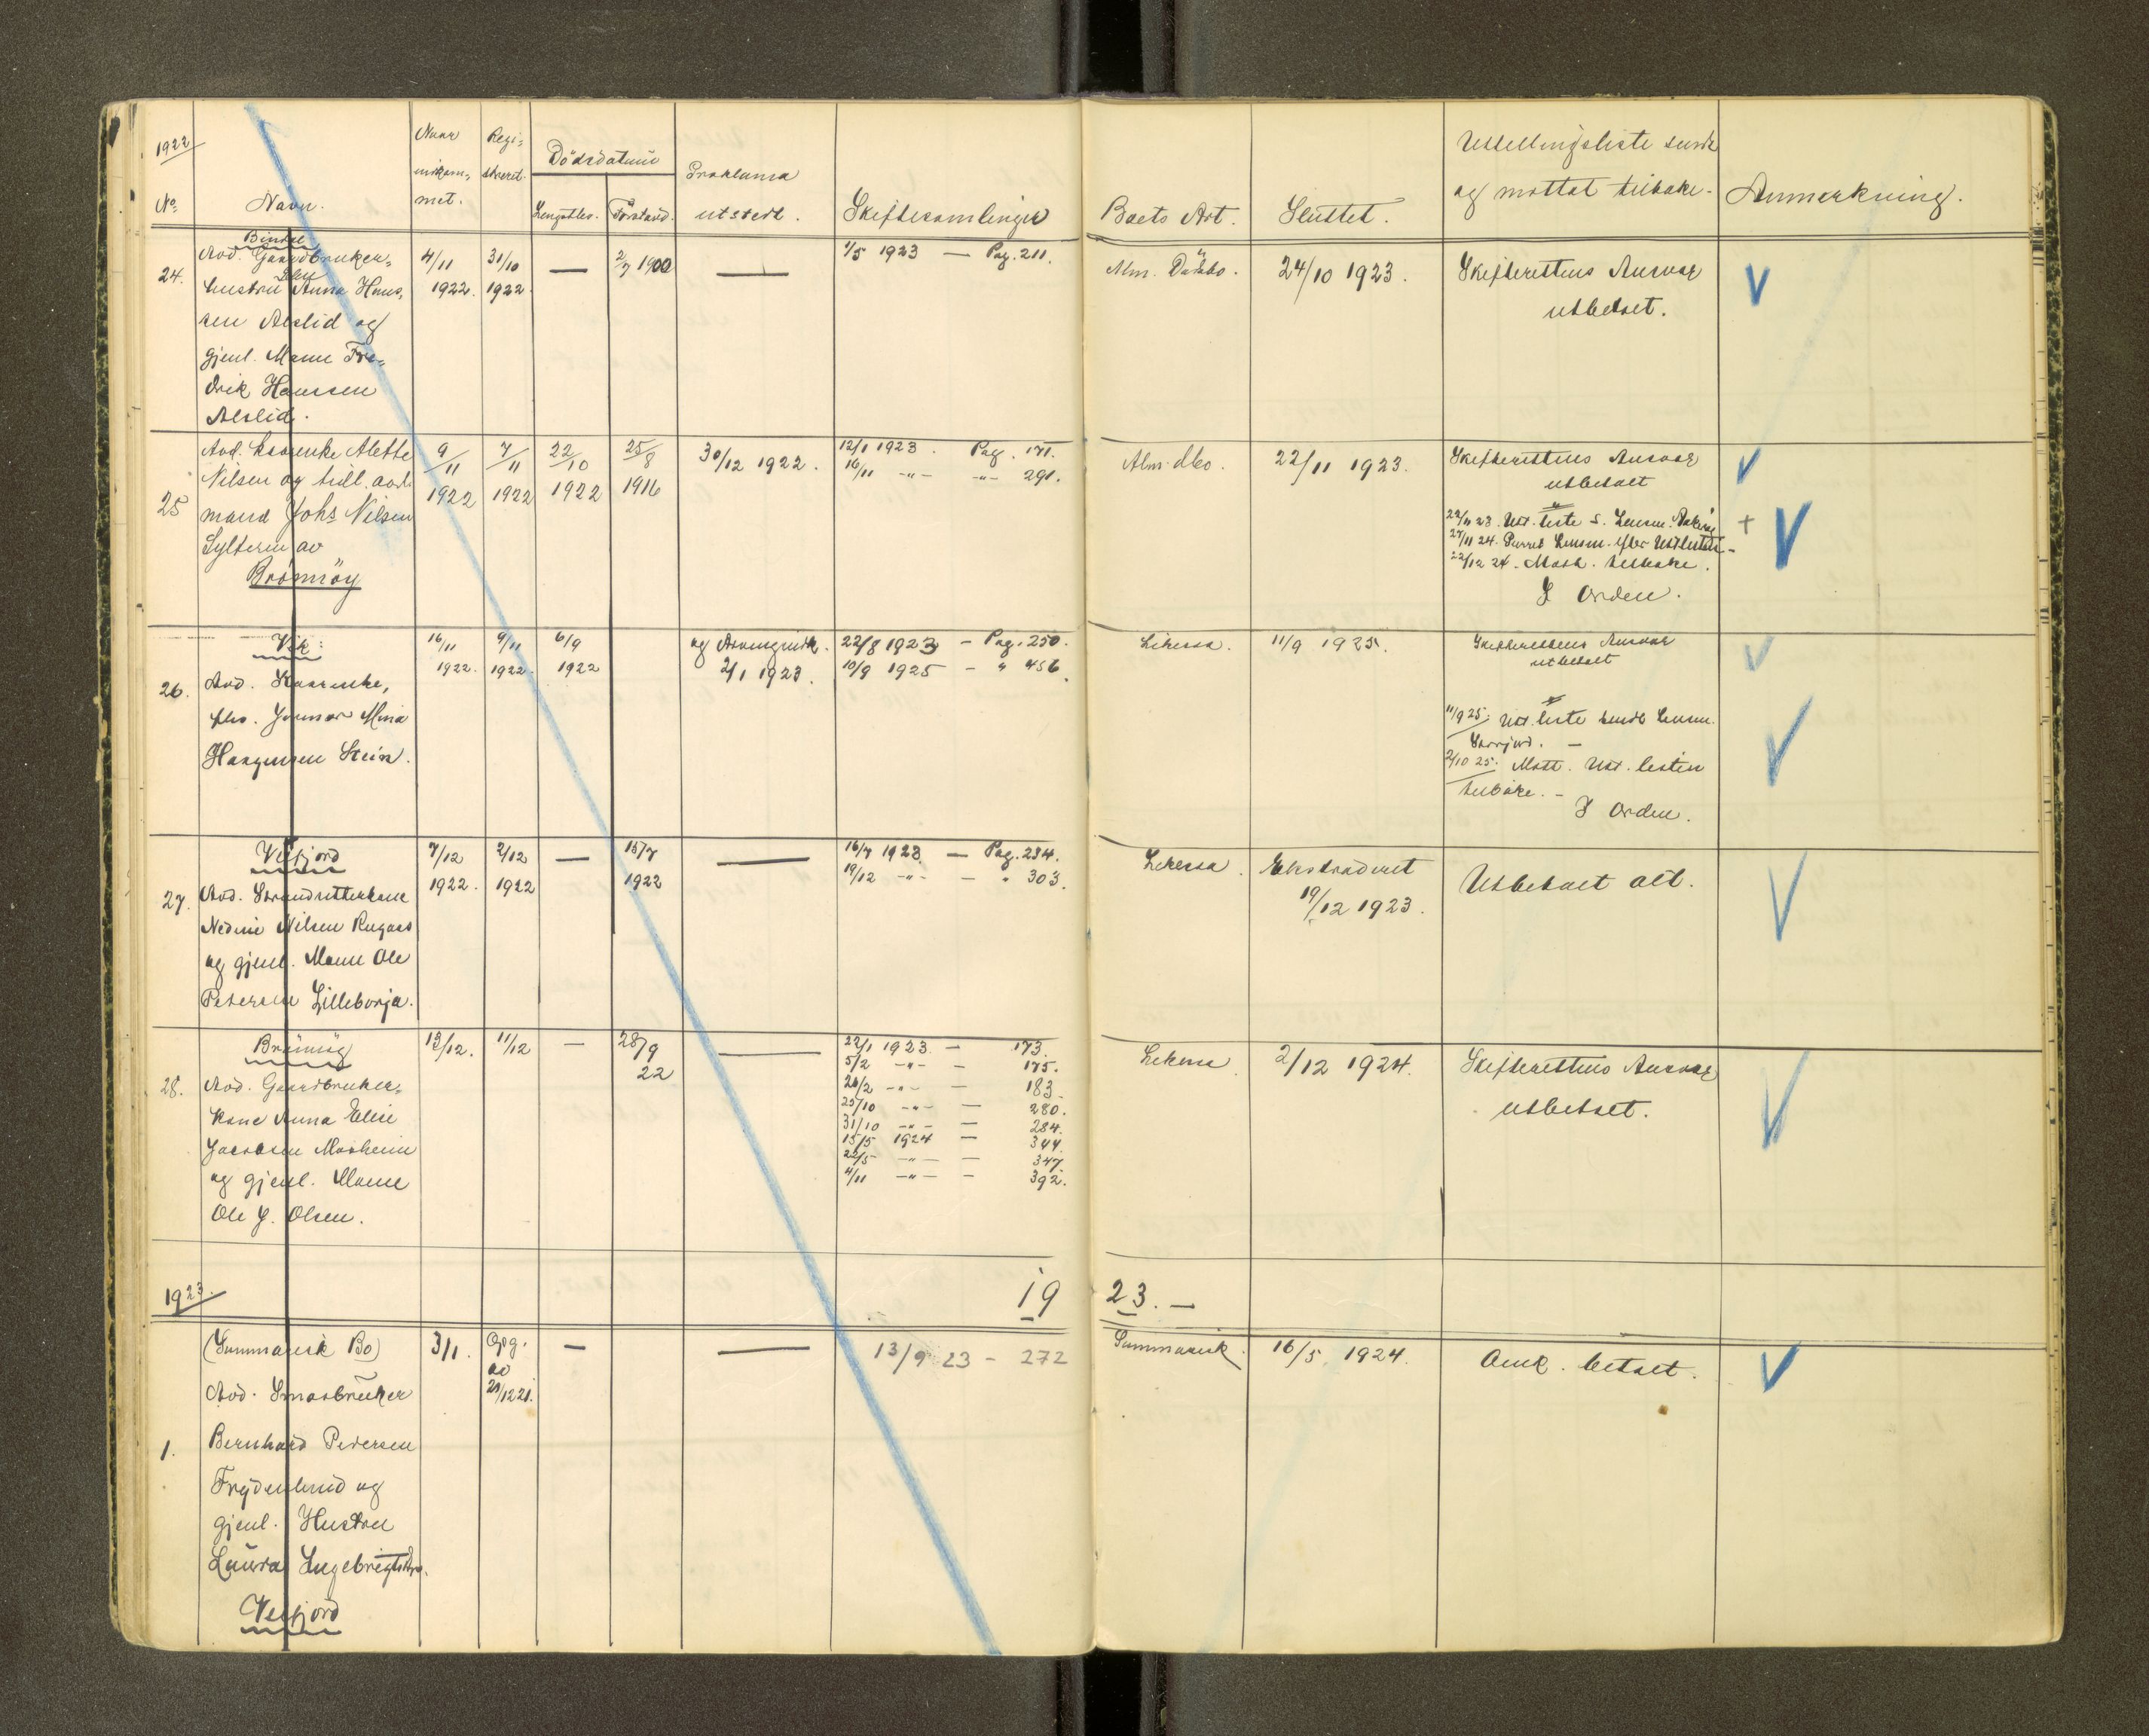 1922
No.
Navn.
Naar
indkom-
met.
Regi-
streret.
Dödsdatum
Lengstlev.
Förstavd.
Proklama
utstedt.
Skiftesamlinger
Boets Art.
Sluttet.
Utstedningsliste sendt
og mottat tilbake.
Anmerkning.
Bindal
24.
Avd. Gaardbruker-
hustru Anna Hans-
sen Aslid og
gjenl. Mann Fre-
drik Hanssen
4/11
1922.
31/10
1922.
—
2/7 1900
—
1/5 1923 — Pag. 211.
Alm. Dödsbo.
24/10 1923.
Skifterettens Ansvar
utbetalt.
25
Avd. Enke Alette
Nilsen og tidl. avd.
mand Johs Nilsen
Sylteren av
Brönnöy
9/11
1922
7/11
1922
22/10
1922
25/8
1916
30/12 1922.
12/1 1923. Pag. 171.
16/11 -"- -"- 291.
Alm. dbo.
22/11 1923.
Skifterettens Ansvar
utbetalt
22/11 23. Utl. liste s. Lensm.
27/11 24. Purret Lensm. efter Utl.listen
22/12 24. Mott. tilbake.
I Orden.
+
Vik:
26.
Avd.
Hagensen Stein.
16/11
1922.
9/11
1922.
6/9
1922
og Arveindk.
2/1 1923.
22/8 1923 — Pag. 250.
10/9 1925 — " 456.
Likessa.
11/9 1925.
Skifterettens Ansvar
utbetalt
11/9 25: Utl. liste sendt Lensm.
2/10 25: Mott. Utl. listen
tilbake. —
I Orden.
Velfjord
27.
Avd.
Nilsen
og gjenl. Mann Ole
Petersen Lilleborja.
7/12
1922.
2/12
1922
—
15/7
1922
—
16/7 1923. — Pag. 234.
19/12 -"- — " 303.
Likessa.
Ekstraderet
19/12 1923.
Utbetalt alt.
Brönnöy
28.
Avd. Gaardbruker-
kone Anna Elise
Jacobsen Mosheim
og gjenl. Mann
Ole J. Olsen.
13/12.
11/12
—
28/9
22
—
22/1 1923 — 173.
5/2 -"- — 175.
26/2 -"- — 183.
25/10 -"- — 280.
31/10 -"- — 284.
15/5 1924 — 344.
22/5 -"- — 347.
4/11 -"- — 392.
Likessa
2/12 1924.
Skifterettens Ansvar
utbetalt.
1923.
19 23. —
(Summarisk Bo)
1.
Avd. Smaabruker
Bernhard Petersen
Frydenlund og
gjenl. Hustru
Laura
Velfjord
3/1.
Opg.
av
—
—
13/9 23 - 272
Summarisk
16/5 1924.
Omk. betalt.